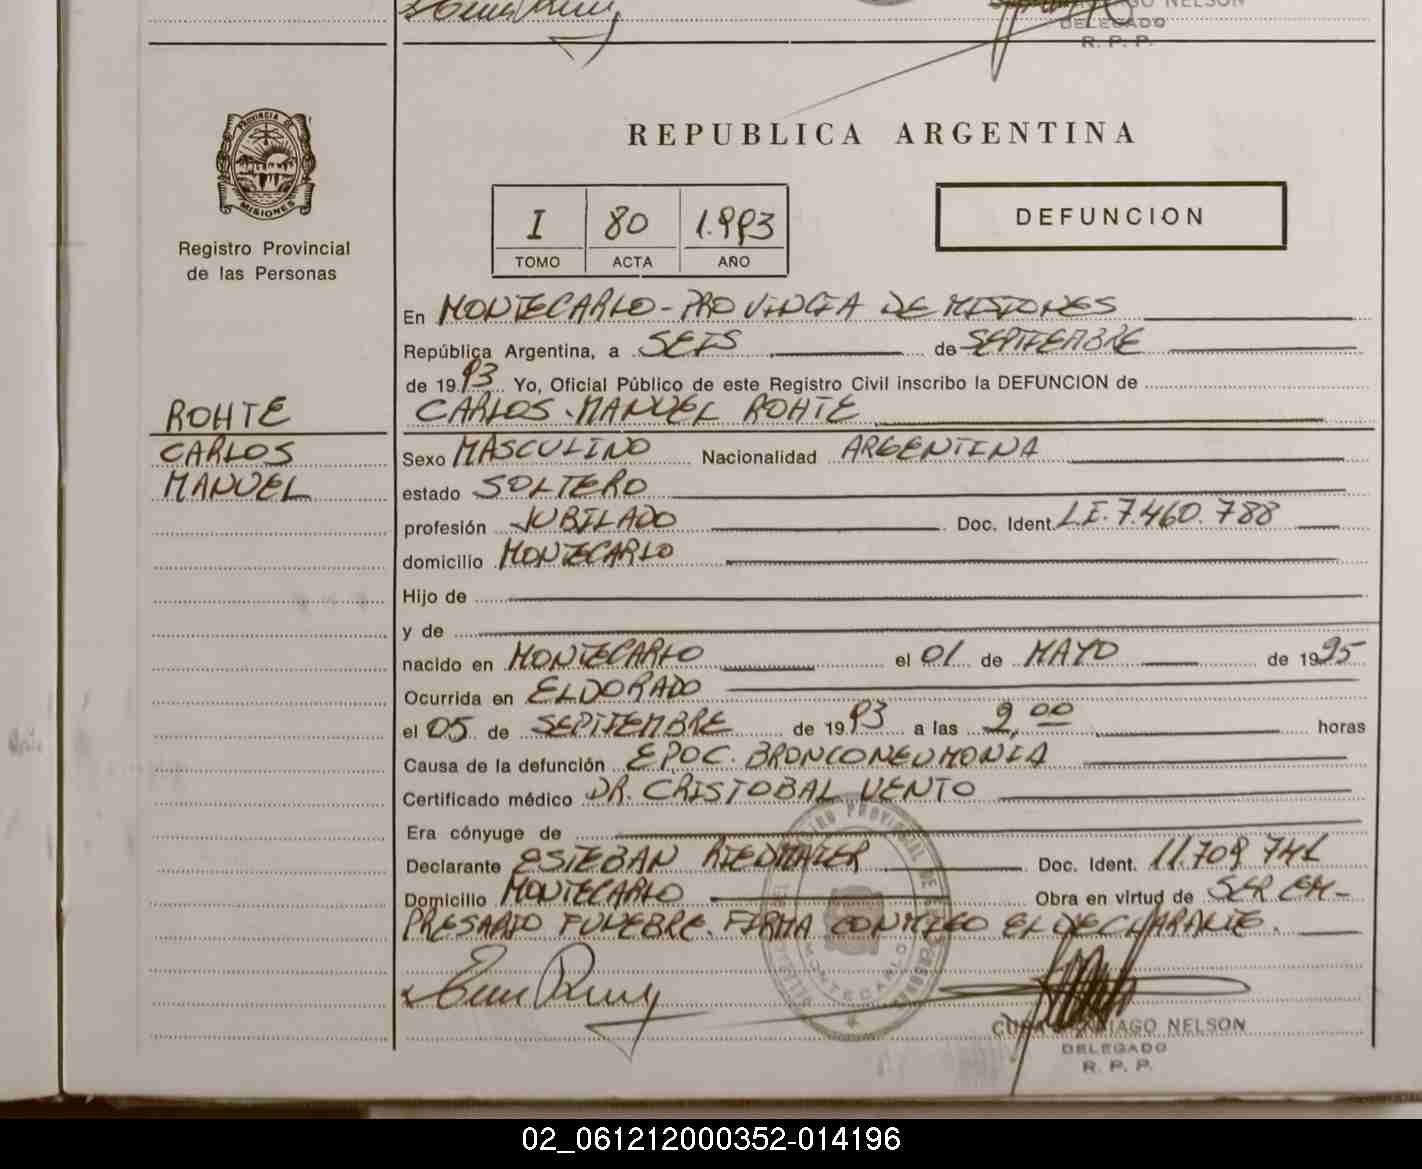 NELSON
DELEGADO
R. P. P.
PROVINCIA DE
MISIONES
Registro Provincial
de las Personas
REPUBLICA ARGENTINA
I 80 1.993
TOMO ACTA AÑO
DEFUNCION
En MONTECARLO - PROVINCIA DE MISIONES
República Argentina, a SEIS de SEPTIEMBRE
de 1993 Yo, Oficial Público de este Registro Civil inscribo la DEFUNCION de
CARLOS MANUEL ROHTE
ROHTE
CARLOS
MANUEL
Sexo MASCULINO Nacionalidad ARGENTINA
estado SOLTERO
profesión JUBILADO Doc. Ident. L.E. 7.460.788
domicilio MONTECARLO
Hijo de
y de
nacido en MONTECARLO el 01 de MAYO de 1995
Ocurrida en ELDORADO
el 05 de SEPTIEMBRE de 1993 a las 2,00 horas
Causa de la defunción EPOC. BRONCONEUMONIA
Certificado médico DR. CRISTOBAL VENTO
Era cónyuge de
Declarante ESTEBAN RIEDMAIER Doc. Ident. 11.709.741
Domicilio MONTECARLO Obra en virtud de SER EM-
PRESARIO FUNEBRE. FIRMA CONMIGO EL DECLARANTE.
MONTECARLO
SANTIAGO NELSON
DELEGADO
R. P. P.
02_061212000352-014196